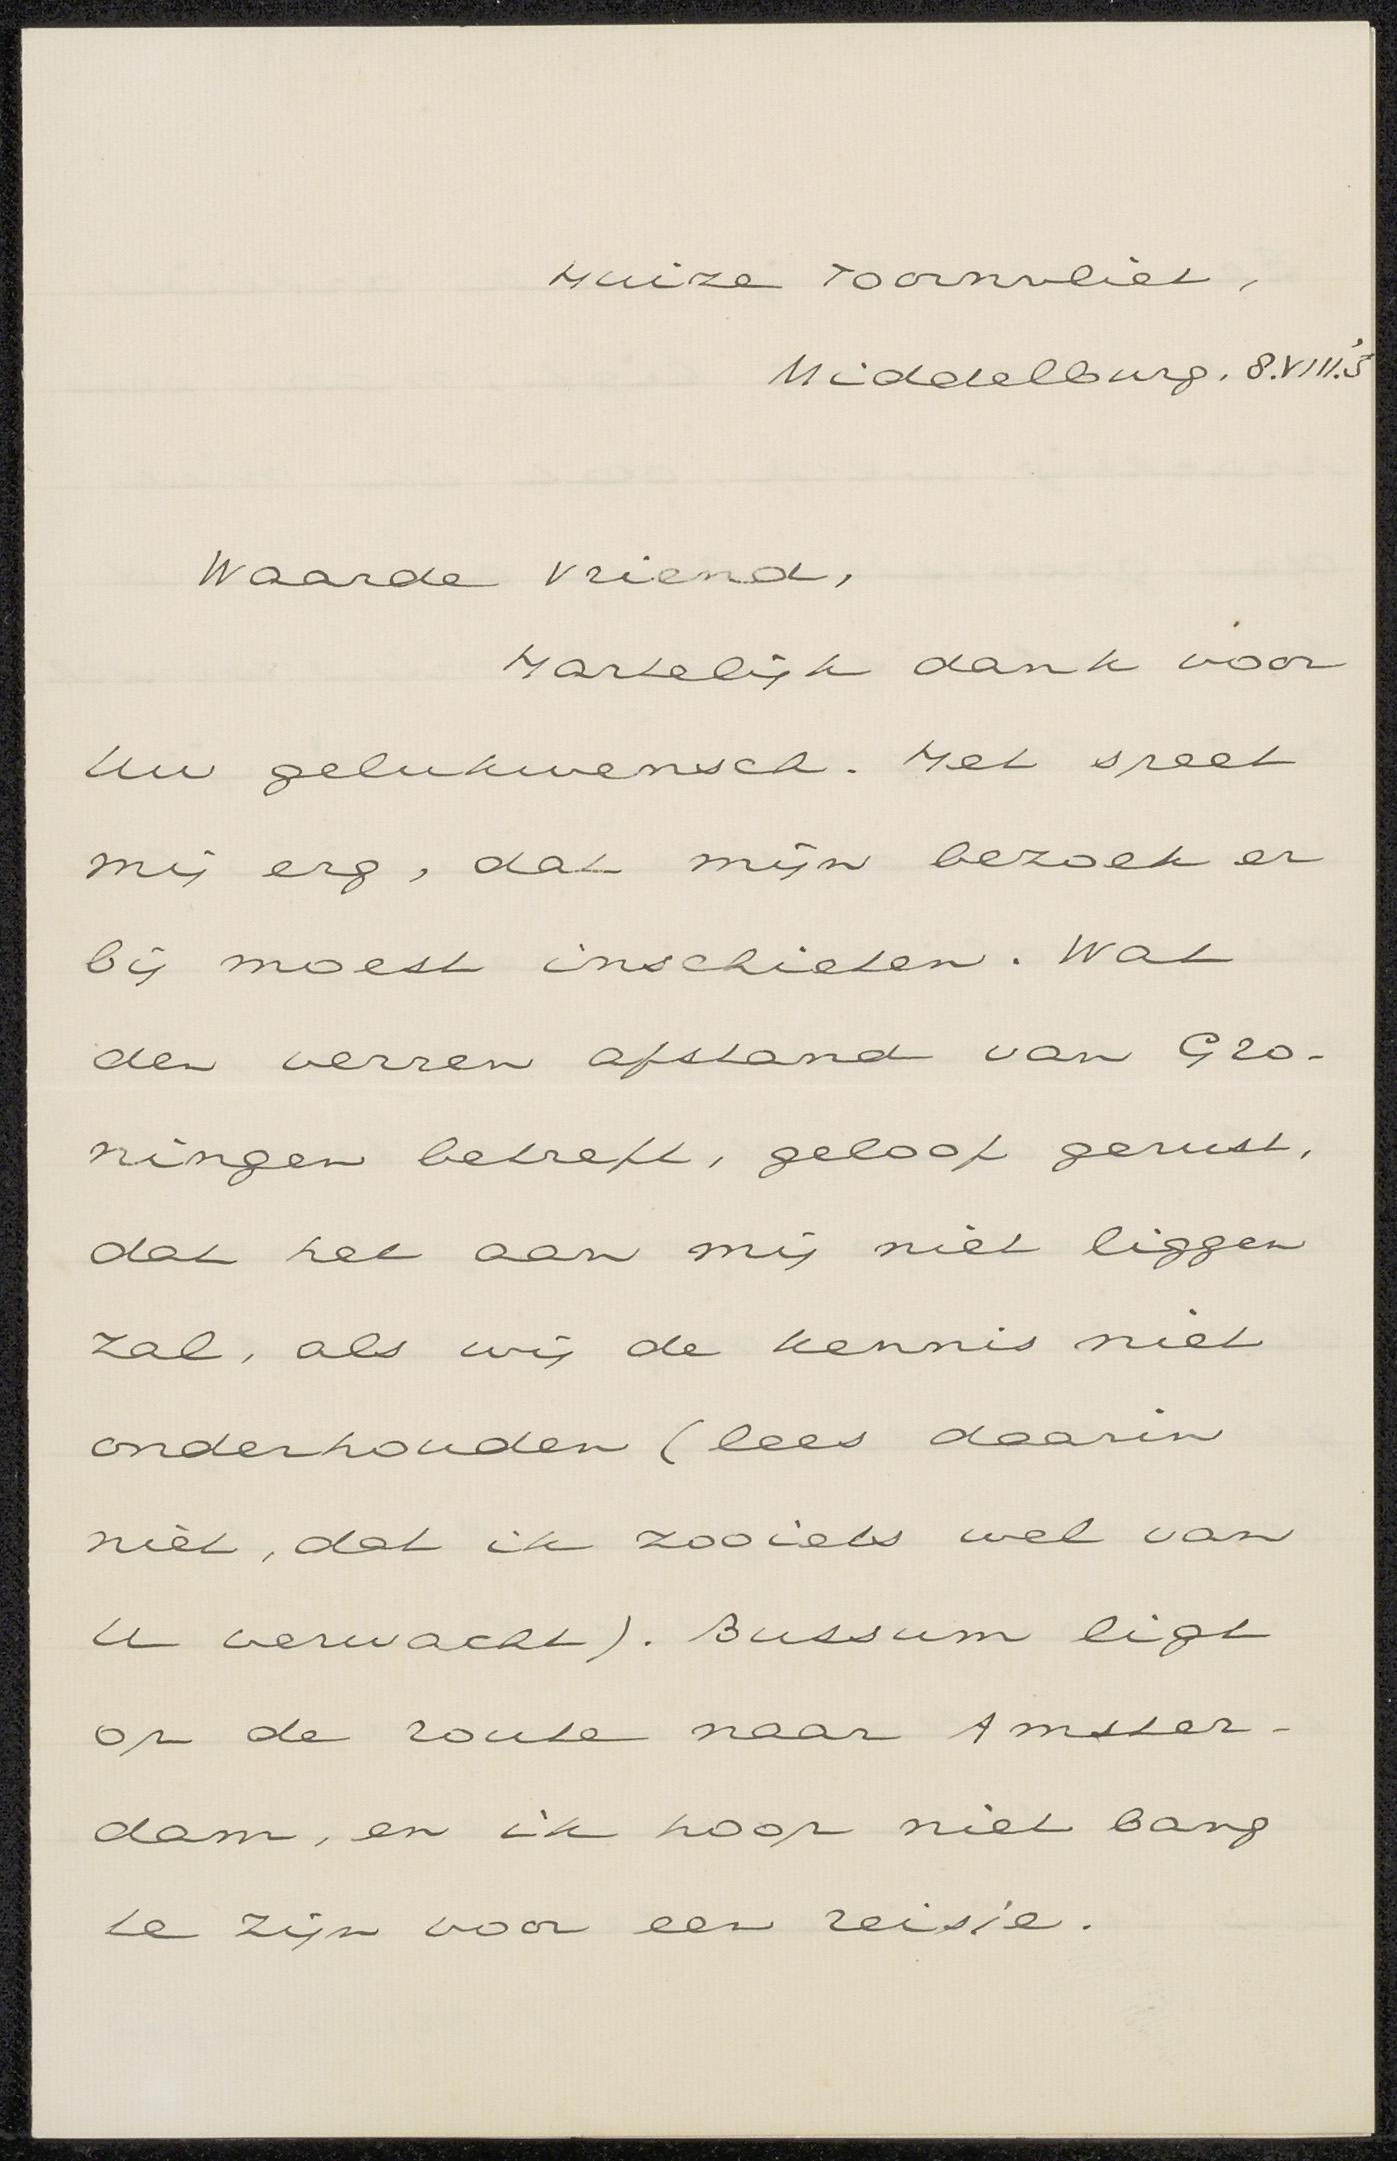 Huize Toornvliet,
Middelburg. 8.VIII.'5
Waarde Vriend,
Hartelijk dank voor
Uw gelukwensch. Het speet
mij erg, dat mijn bezoek er
bij moest inschieten. Wat
den verren afstand van Gro-
ningen betreft, geloof gerust,
dat het aan mij niet liggen
zal, als wij de kennis niet
onderhouden (lees daarin
niet, dat ik zooiets wel van
U verwacht). Bussum ligt
op de route naar Amster-
dam, en ik hoop niet bang
te zijn voor een reisje.